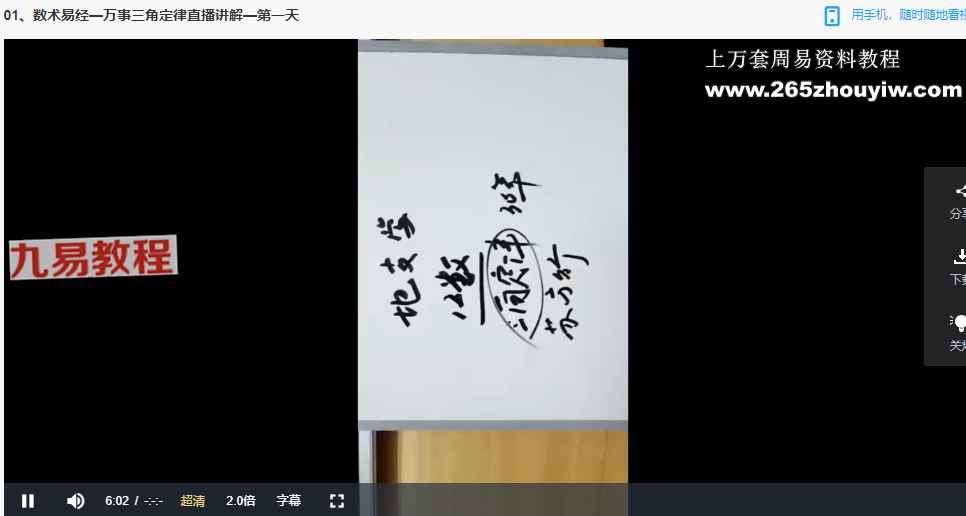 01、数术易经—万事三角定律直播讲解—第一天
用手机，随时随地看视
上万套周易资料教程
www.265zhouyiw.com
九易教程
地支学
12数
定律 30年
分享
下载
关灯
6:02 / -:-:-
超清
2.0倍
字幕